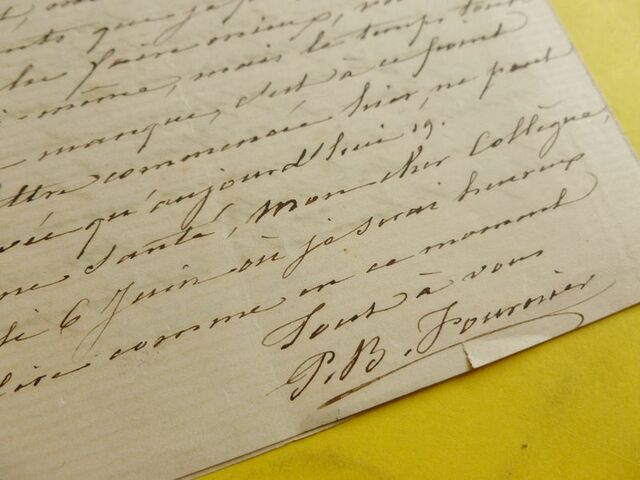 nts que je p
faire mieux, v
-même, mais le temps tou
manque, c'est à ce point
ttre commencée hier, ne peut
vée qu'aujourd'hui 19.
ne santé, mon cher Collègue,
di 6 Juin où je serai heureux
dire comme en ce moment
Tout à vous
P. B. Fournier